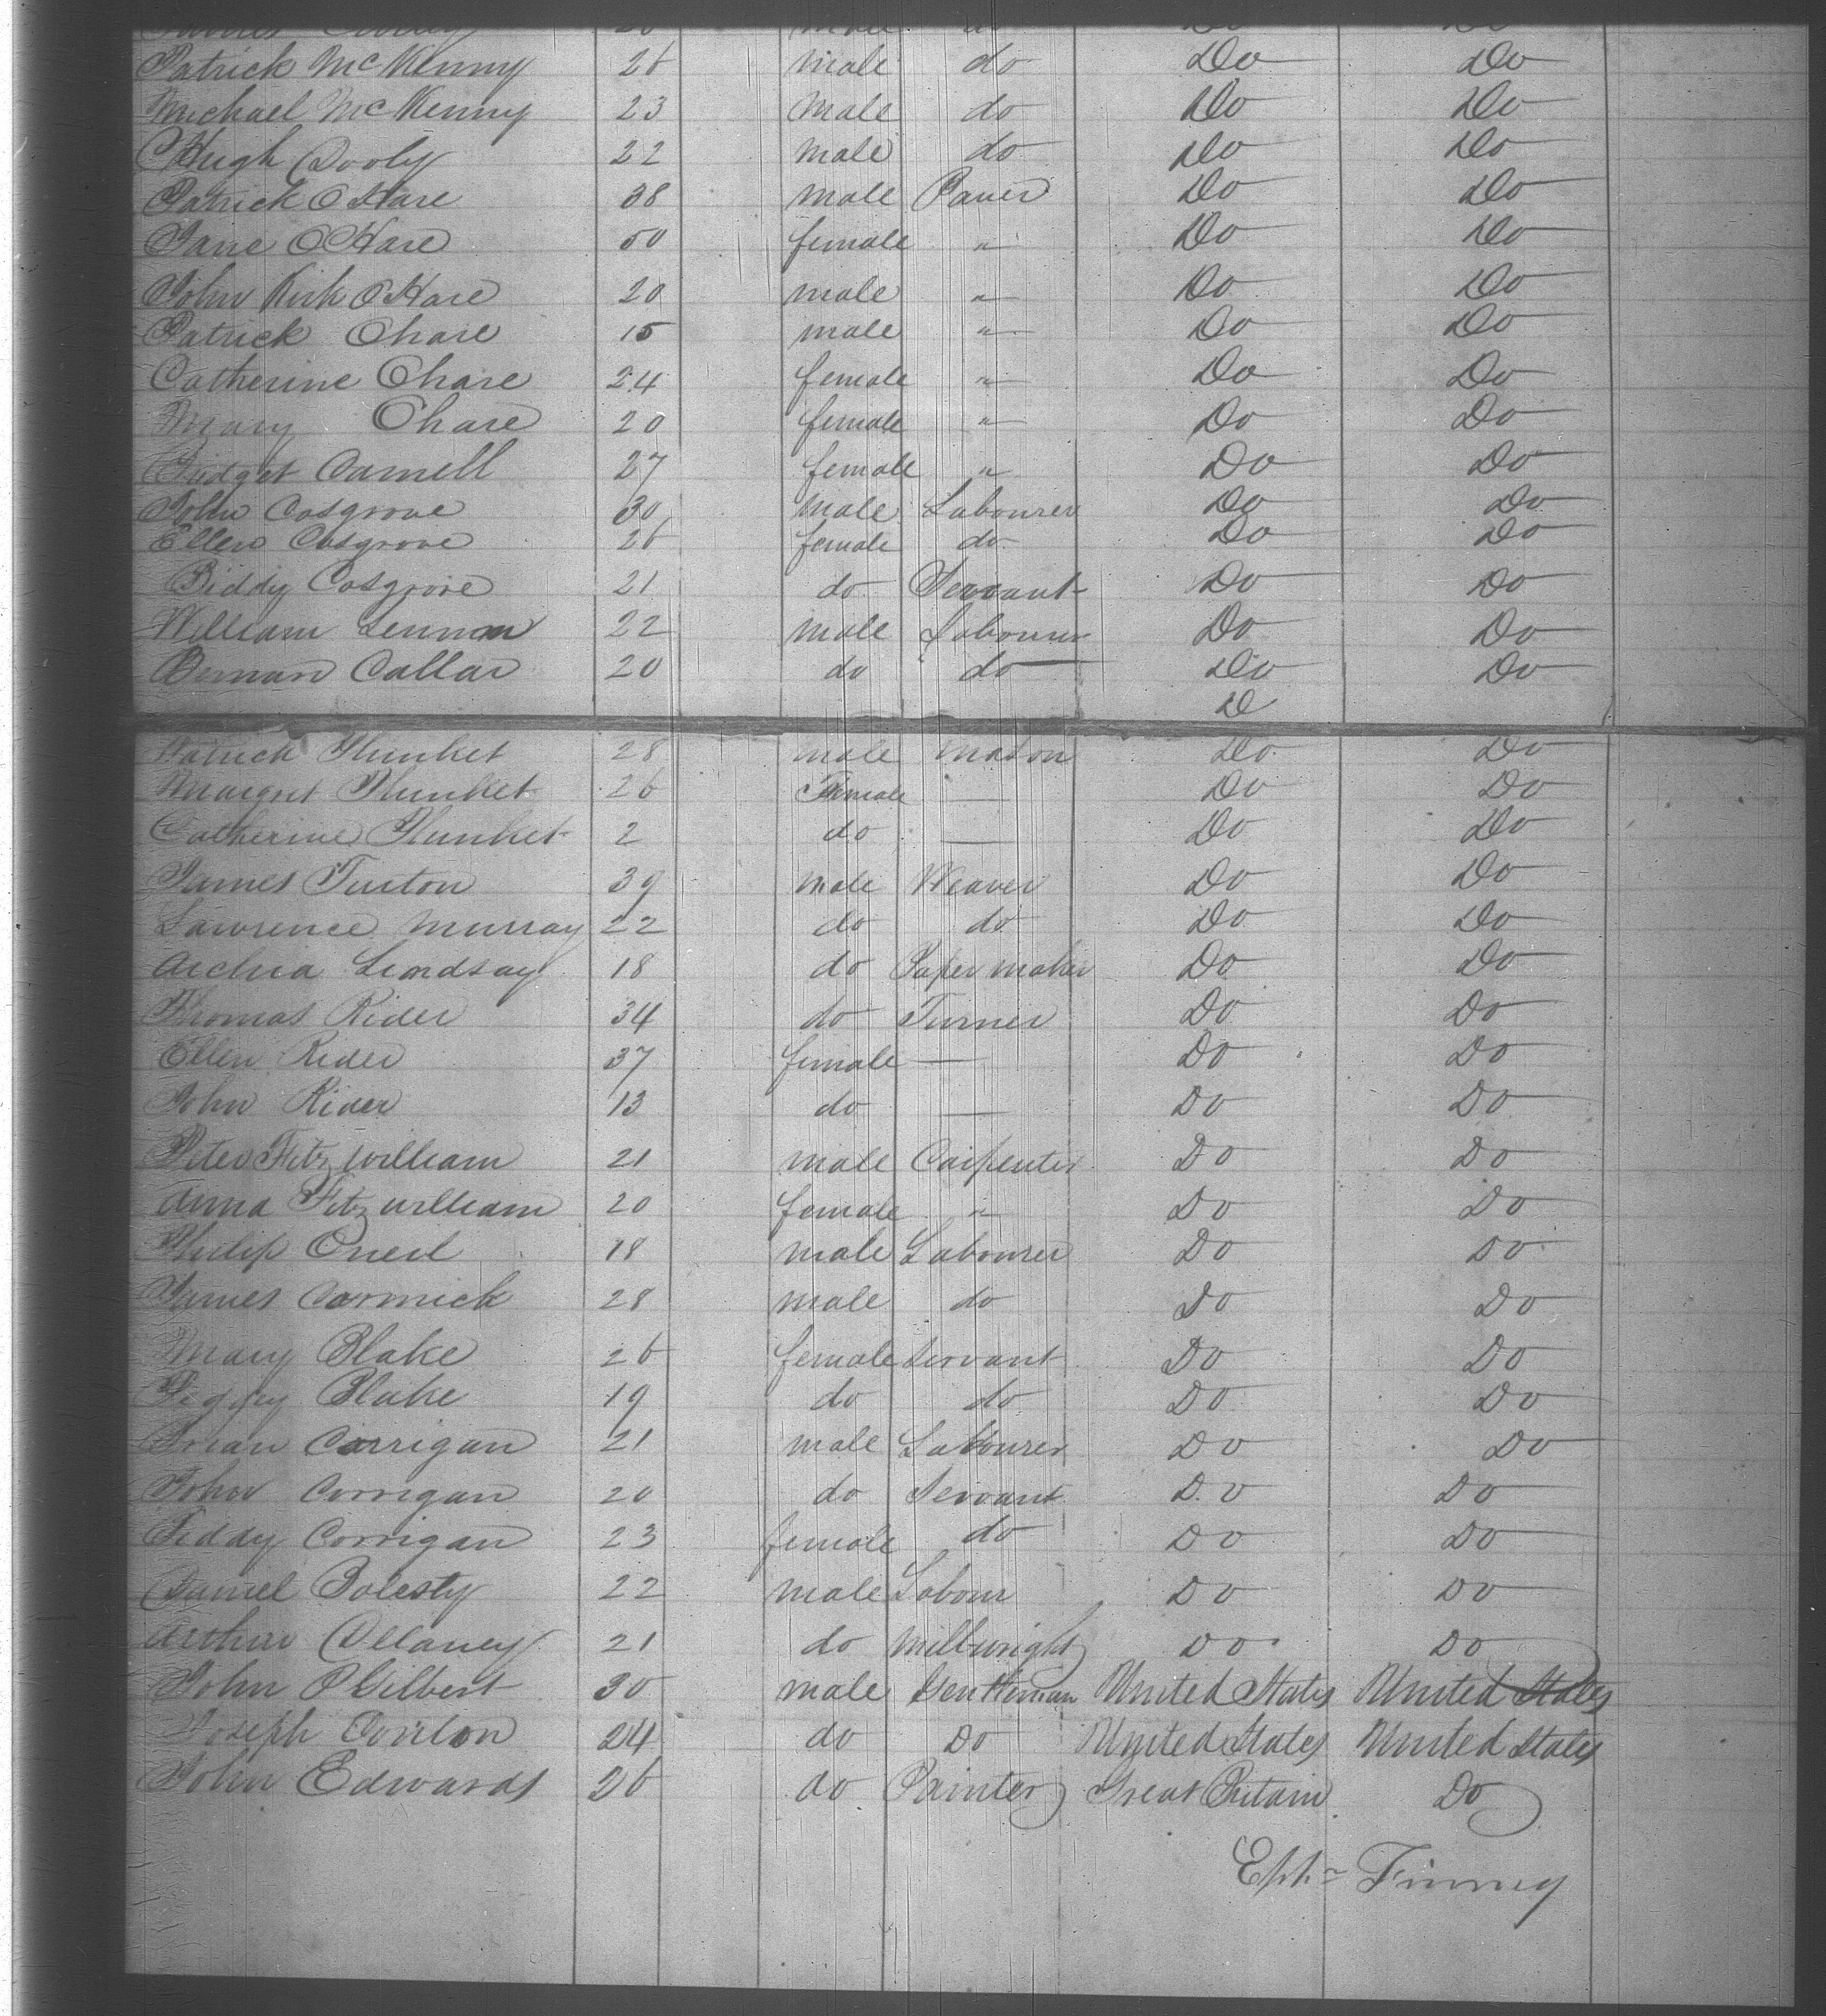 male Do Do
Patrick McKenny 26 male do Do Do
Michael McKenny 23 male do Do Do
Hugh Dooly 22 male do Do Do
Patrick OHare 38 male Paver Do Do
Jane OHare 50 female " Do Do
John Kirk OHare 20 male " Do Do
Patrick Ohare 15 male " Do Do
Catherine Ohare 24 female " Do Do
Mary Ohare 20 female " Do Do
Bridget Carnell 27 female " Do Do
John Cosgrove 30 male Labourer Do Do
Ellen Cosgrove 26 female do Do Do
Biddy Cosgrove 21 do Servant Do Do
William Lennon 22 male Labourer Do Do
Bernan Callar 20 do do Do Do
D
Patrick Plunket 28 male Mason Do Do
Margret Plunket 26 Female — Do Do
Catherine Plunket 2 do — Do Do
James Turton 39 male Weaver Do Do
Lawrence Murray 22 do do Do Do
Lindsay 18 do Paper maker Do Do
Thomas Rider 34 do Turner Do Do
Ellen Rider 37 female — Do Do
John Rider 13 do — Do Do
Peter Fitzwilliam 21 male Carpenter Do Do
Anna Fitzwilliam 20 female " Do Do
Philip Oneil 18 male Labourer Do Do
James Cormick 28 male do Do Do
Mary Blake 26 female Servant Do Do
Peggy Blake 19 do do Do Do
Brian Corrigan 21 male Labourer Do Do
John Corrigan 20 do Servant Do Do
Corrigan 23 female do Do Do
Daniel Bolesty 22 male Labour Do Do
Arthur Dellaney 21 do Millwright Do Do
John P Gilbert 30 male Gentleman United States United States
Joseph Conlon 24 do Do United States United States
John Edwards 26 do Painter Great Britain Do
Ephm Finney